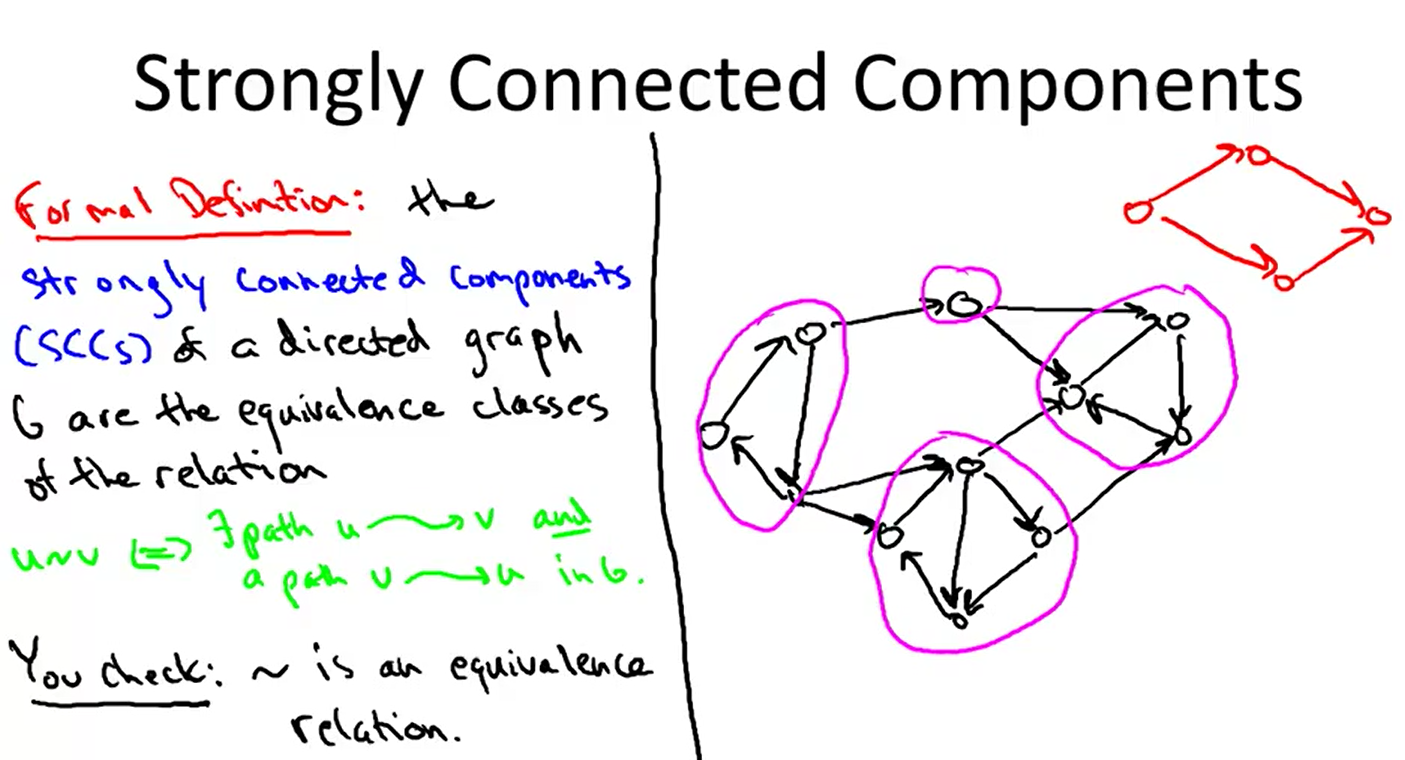 Strongly Connected Components
Formal Definition: the
strongly connected components
(SCCs) of a directed graph
G are the equivalence classes
of the relation
u~v <=> ∃ path u⇝v and
a path v⇝u in G.
You check: ~ is an equivalence
relation.